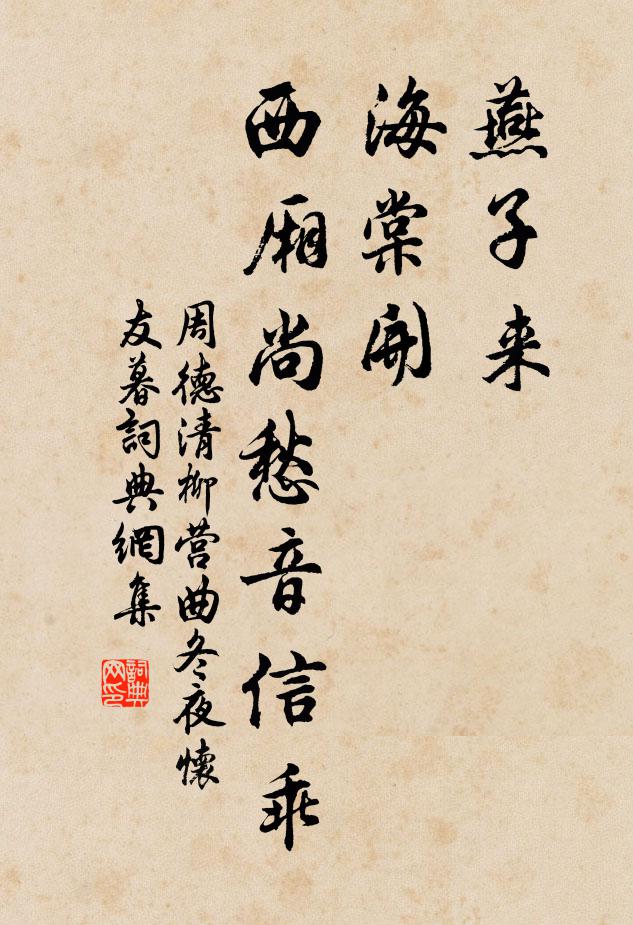 燕子来
海棠開
西厢尚愁音信乖
周德清柳营曲冬夜懷
友暮詞典網集
詞典网印